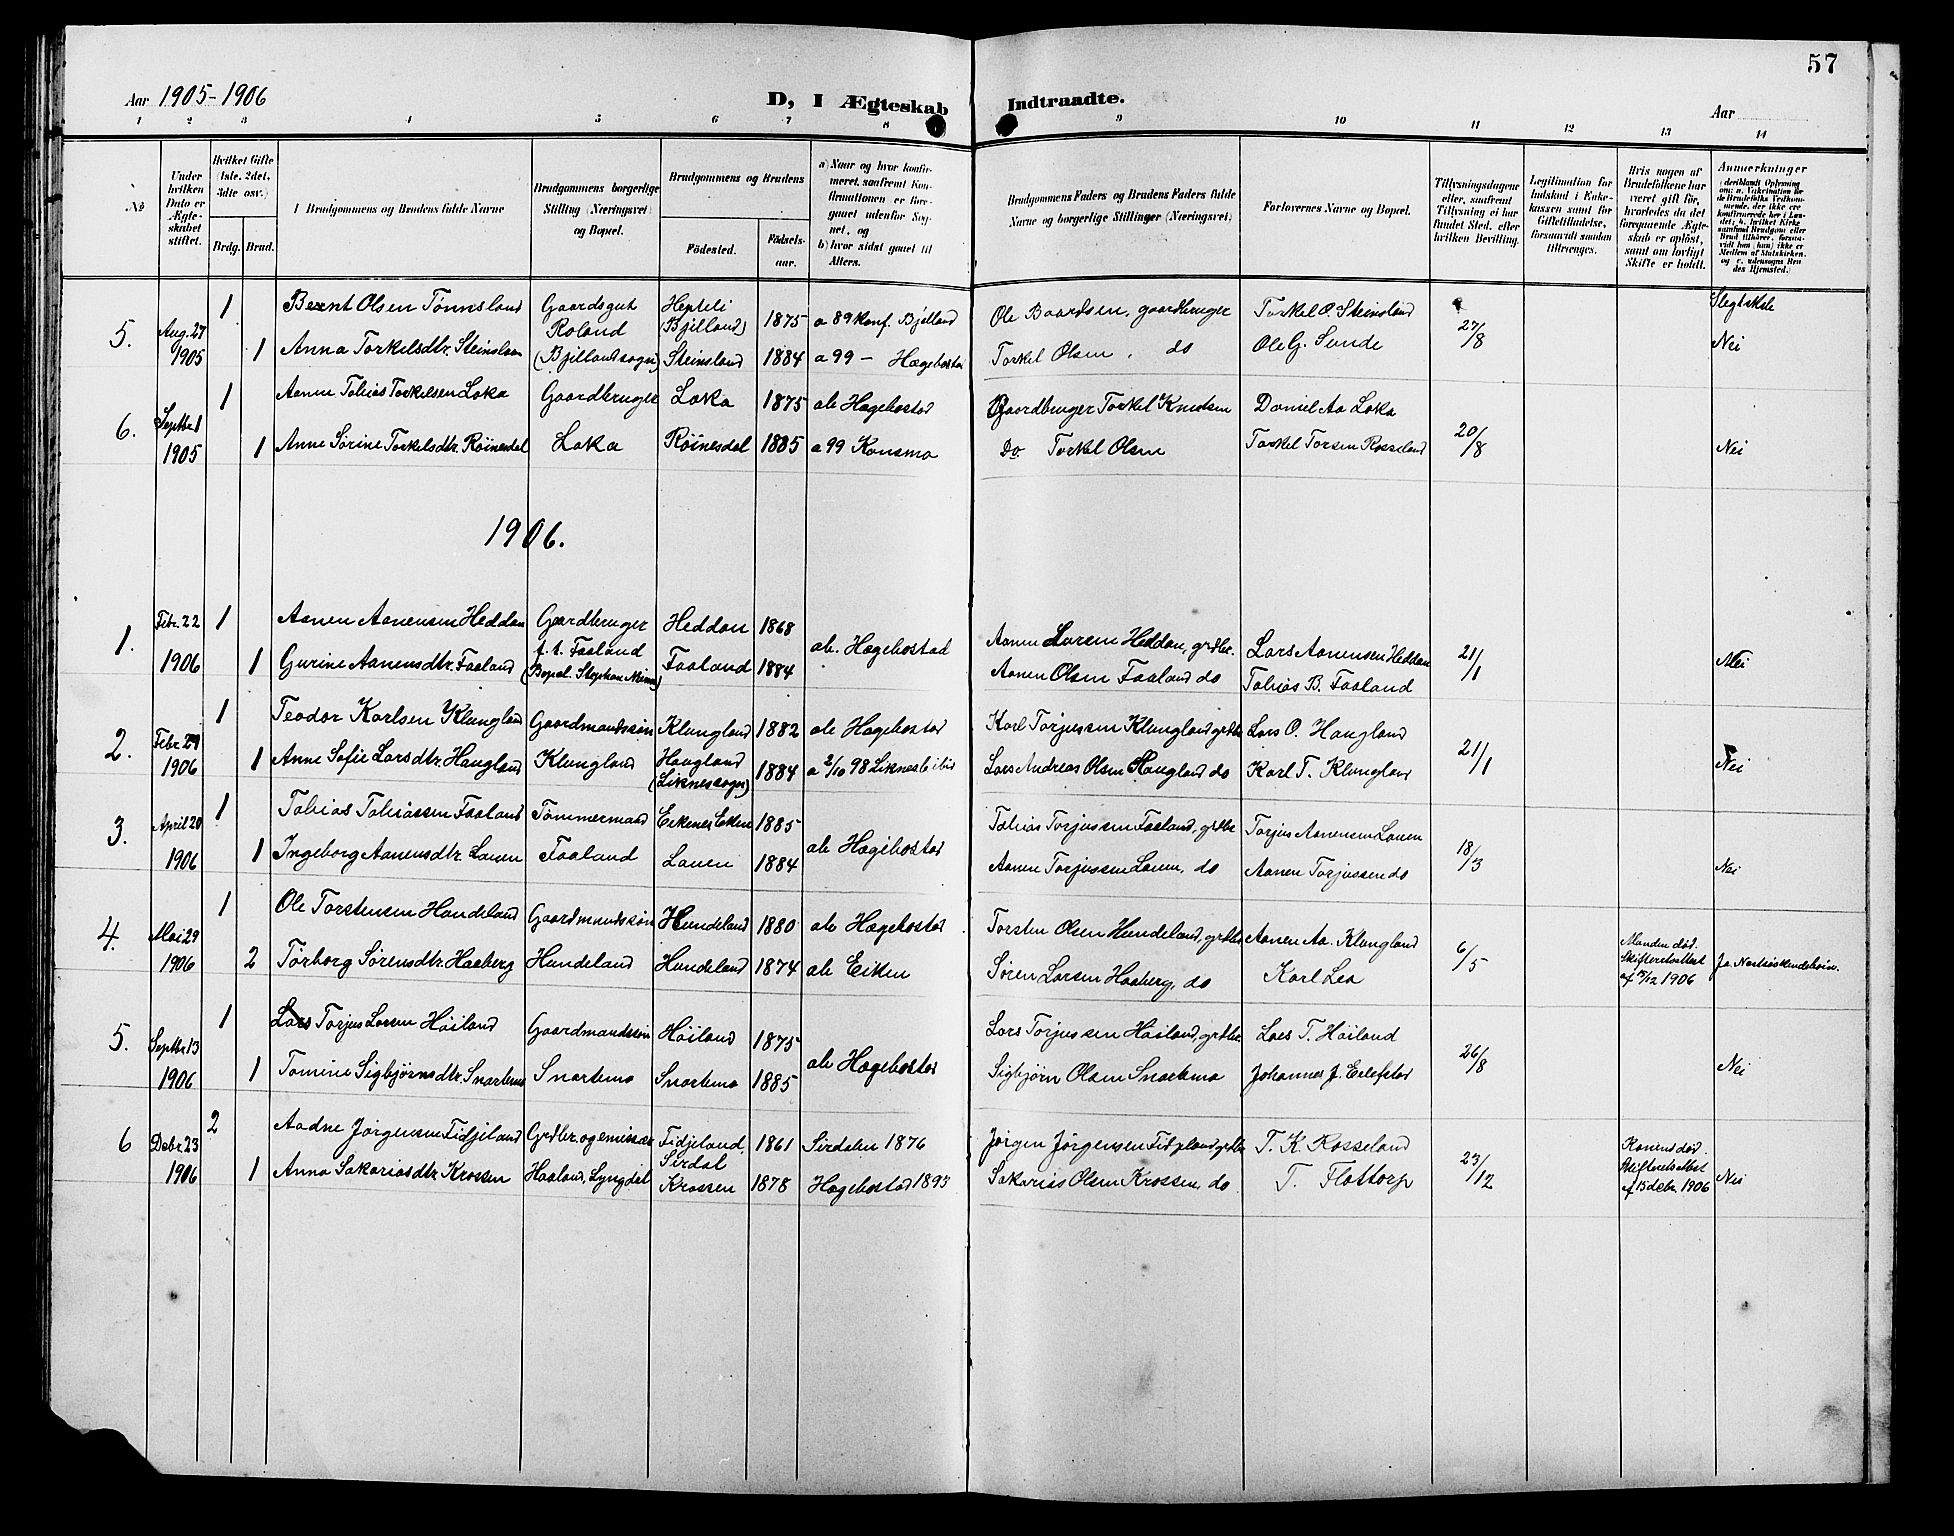 57
Aar 1905-1906
D, I Ægteskab Indtraadte.
Aar
1 2 3 4 5 6 7 8 9 10 11 12 13 14
No
Under hvilken Dato er Ægteskabet stiftet.
Hvilket Gifte (1ste, 2det, 3die osv.)
Brdg. Brud.
Brudgommens og Brudens fulde Navne
Brudgommens borgerlige Stilling (Næringsvei) og Bopæl.
Brudgommens og Brudens
Födested.
Födselsaar.
a) Naar og hvor konfirmeret, saafremt Konfirmationen er foregaaet udenfor Sognet, og
b) hvor sidst gaaet til Alters.
Brudgommens Faders og Brudens Faders fulde Navne og borgerlige Stillinger (Næringsvei)
Forlovernes Navne og Bopæl.
Tillysningsdagene eller, saafremt Tillysning ei har fundet Sted, efter hvilken Bevilling.
Legitimation for Indskud i Enkekassen samt for Giftetilladelse, forsaavidt saadan tiltrænges.
Hvis nogen af Brudefolkene har været gift før, hvorledes da det foregaaende Ægteskab er oplöst, samt om lovligt Skifte er holdt.
Anmærkninger
5. Aug. 27 1905 1 Bernt Olsen Tønnsland Gaardsgut Roland (Bjellandsogn) Hepteli (Bjelland) 1875 a 89 Konf. Bjelland Ole Baardsen, gaardbruger Torkel O. Steinsland 27/8 Slegtskab
1 Anna Torkelsdtr. Steinsland Steinsland 1884 a 99 - Hægebostad Torkel Olsen, do Ole G. Sunde Nei
6. Septbr. 1 1905 1 Aanen Tobias Torkelsen Loka Gaardbruger Loka 1875 ab Hægebostad Gaardbruger Torkel Knudsen Daniel Aa Loka 20/8
1 Anne Sørine Torkelsdtr. Röinesdal Loka Röinesdal 1885 a 99 Konsmo Do Torkel Olsen Torkel Torsen Rosseland Nei
1906.
1. Febr. 22 1906 1 Aanen Aanensen Heddan Gaardbruger f. t. Faaland Heddan 1868 ab. Hægebostad Aanen Larsen Heddan, grdbr. Lars Aanensen Heddan 21/1
1 Gurine Aanensdtr. Faaland (Bopæl. Faaland 1884 Aanen Olsen Faaland do Tobias B. Faaland Nei
2. Febr. 1906 1 Teodor Karlsen Klungland Gaardmandssön Klungland 1882 ab Hægebostad Karl Torjussen Klungland grdbr Lars O. Haugland 21/1
1 Anne Sofie Larsdtr. Haugland Klungland Haugland (Liknessogn) 1884 a 2/10 98 Liknes Lars Andreas Olsen Haugland do Karl T. Klungland Nei
3. April 20 1906 1 Tobias Tobiassen Faaland Tømmermand Eikenes Eiken 1885 ab Hægebostad Tobias Torjussen Faaland, grdbr Torjus Aanensen Lauen 18/3
1 Ingeborg Aanensdtr. Lauen Faaland Lauen 1884 Aanen Torjussen Lauen, do Aanen Torjussen do Nei
4. Mai 29 1906 1 Ole Torstensen Hundeland Gaardmandssön Hundeland 1880 ab Hægebostad Torsten Olsen Hundeland, grdbr Aanen Aa. Klungland 6/5 Manden död. Skifteretsattest af 15/12 1906
2 Tørborg Sørensdtr. Haaberg Hundeland Hundeland 1874 ab Eiken Søren Larsen Haaberg, do Karl Lea Ja. Næstsöskendebörn.
5. Septbr. 13 1906 1 Lars Torjus Larsen Höiland Gaardmandssön Höiland 1875 ab Hægebostad Lars Torjussen Höiland, grdbr. Lars T. Höiland 26/8
1 Tomine Sigbjørnsdtr. Snartemo Snartemo Snartemo 1885 Sigbjørn Olsen Snartemo Johannes J. Eilefstad Nei
6 Debr. 23 1906 2 Aadne Jørgensen Fidjeland Grdbr. og emissær Fidjeland, Sirdal 1861 Sirdalen 1876 Jørgen Jørgensen Fidjeland grdbr T. K. Rosseland 23/12 Konens død. Skifteretsattest af 15 debr. 1906
1 Anna Sakariasdtr. Krossen Haaland, Lyngdal Krossen 1878 Hægebostad 1893 Sakarias Olsen Krossen, do T. Flottorp Nei